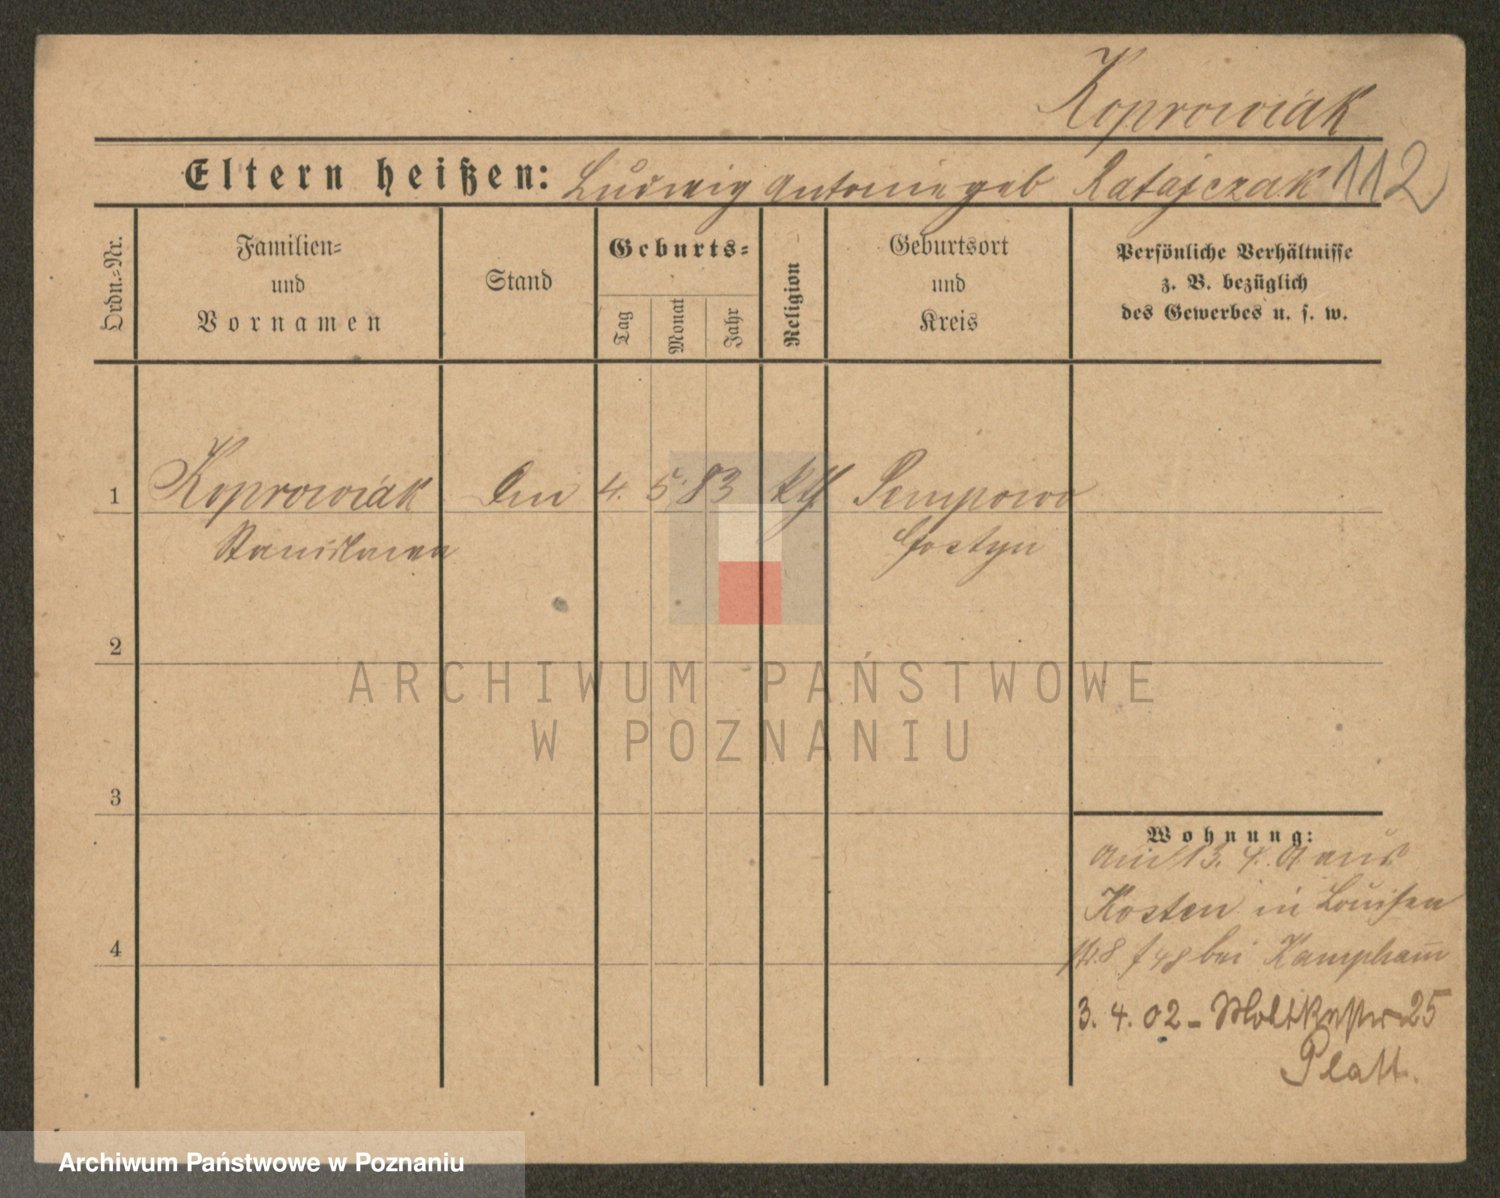 Koprowiak
Eltern heißen: Ludwig Antonie geb Ratajczak 112
Ordn.=Nr.
Familien=
und
Vornamen
Stand
Geburts=
Tag
Monat
Jahr
Religion
Geburtsort
und
Kreis
Persönliche Verhältnisse
z. B. bezüglich
des Gewerbes u. s. w.
1 Koprowiak 4. 5. 83 kth Pempowo
Stanislawa Gostyn
2
ARCHIWUM PAŃSTWOWE
W POZNANIU
3
Wohnung:
am 13. 4. 01 aus
Kosten in Louisen
4
str 8 bei Kampham̄
3. 4. 02 - Moltkestr 25
Platt.
Archiwum Państwowe w Poznaniu